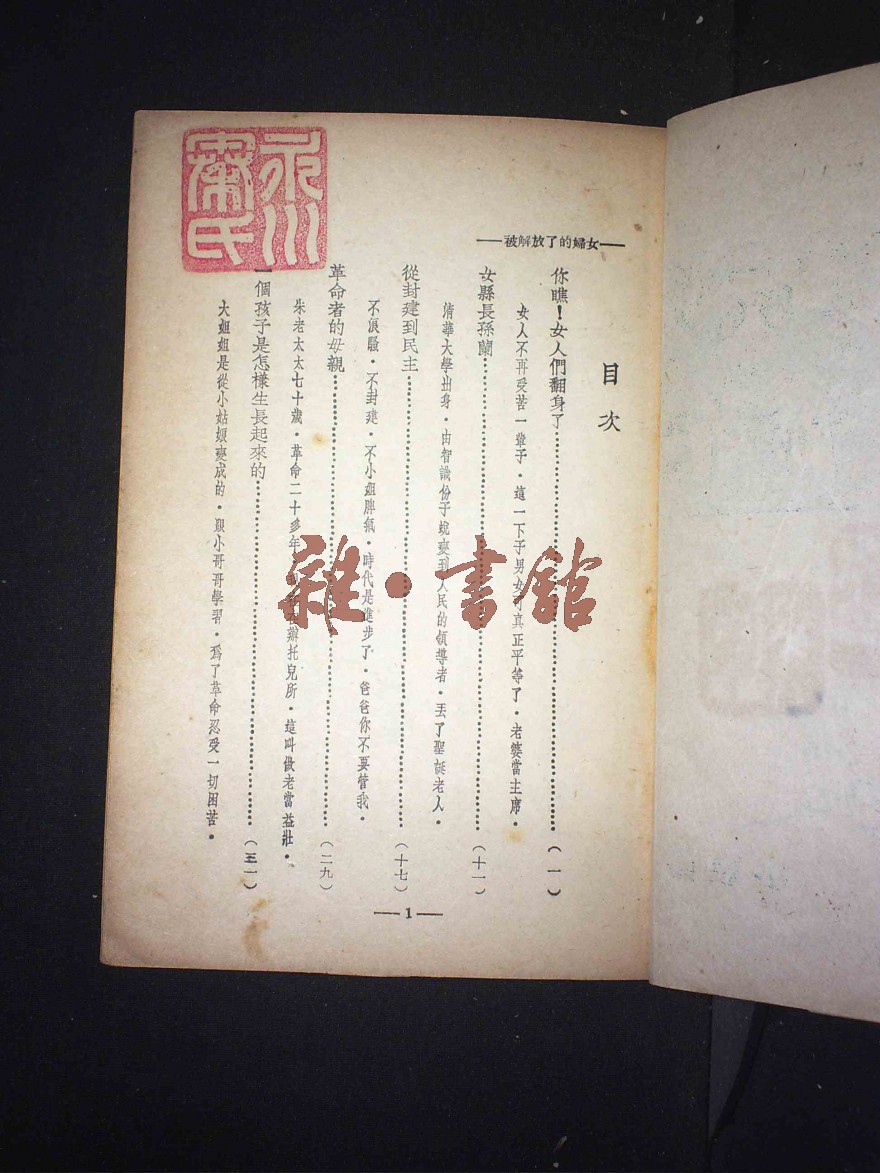 被解放了的婦女
目次
你瞧！女人們翻身了（一）
女人不再受苦一輩子・這一下子男女可真正平等了・老婆當主席・
女縣長孫蘭（十一）
清華大學出身・由智識份子蛻變到人民的領導者・丟了聖誕老人・
從封建到民主（十七）
不浪騷・不封建・不小姐脾氣・時代是進步了・爸爸你不要管我・
革命者的母親（二九）
朱老太太七十歲・革命二十多年・辦托兒所・這叫做老當益壯・
一個孩子是怎樣生長起來的（三一）
大姐姐是從小姑娘變成的・跟小哥哥學習・爲了革命忍受一切困苦・
1
永川
氏
雜・書館